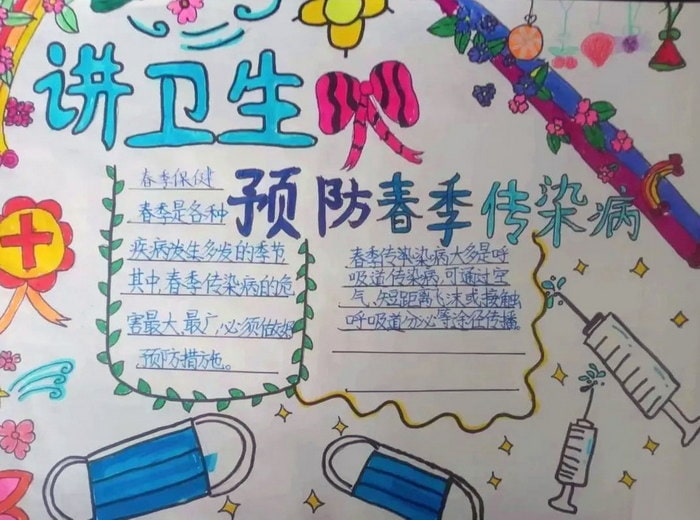 讲卫生
预防春季传染病
春季保健
春季是各种
疾病发生多发的季节
其中,春季传染病的危
害最大、最广,必须做好
预防措施。
春季传染染病大多是呼
吸道传染病,可通过空
气、短距离飞沫或接触
呼吸道分泌等途径传播。